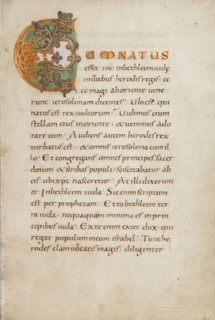 CUM NATUS
esset ihc inbethleem iudę
indiebus herodis regis. ec
ce magi aboriente uene
runt ierosolimam dicentes. Ubiest qui
natus est rex iudeorum? Uidimus enim
stellam eius inoriente. & uenimus ado
rare eum; Audiens autem herodes rex
turbatus est. & omnis ierosolima cum il
lo; Et congregans omnes principes sacer
dotum & scribas populi. sciscitabatur ab
eis ubi xpc nasceretur; At illi dixerunt
ei Inbethleem iuda; Sic enim scriptum
est per prophetam; Et tu bethleem ter
ra iuda. nequaquam minima es in prin
cipibus iuda; Ex te enim exiet dux. qui
regat populum meum israhel; Tunc he
rodes clam uocatis magis. diligenter